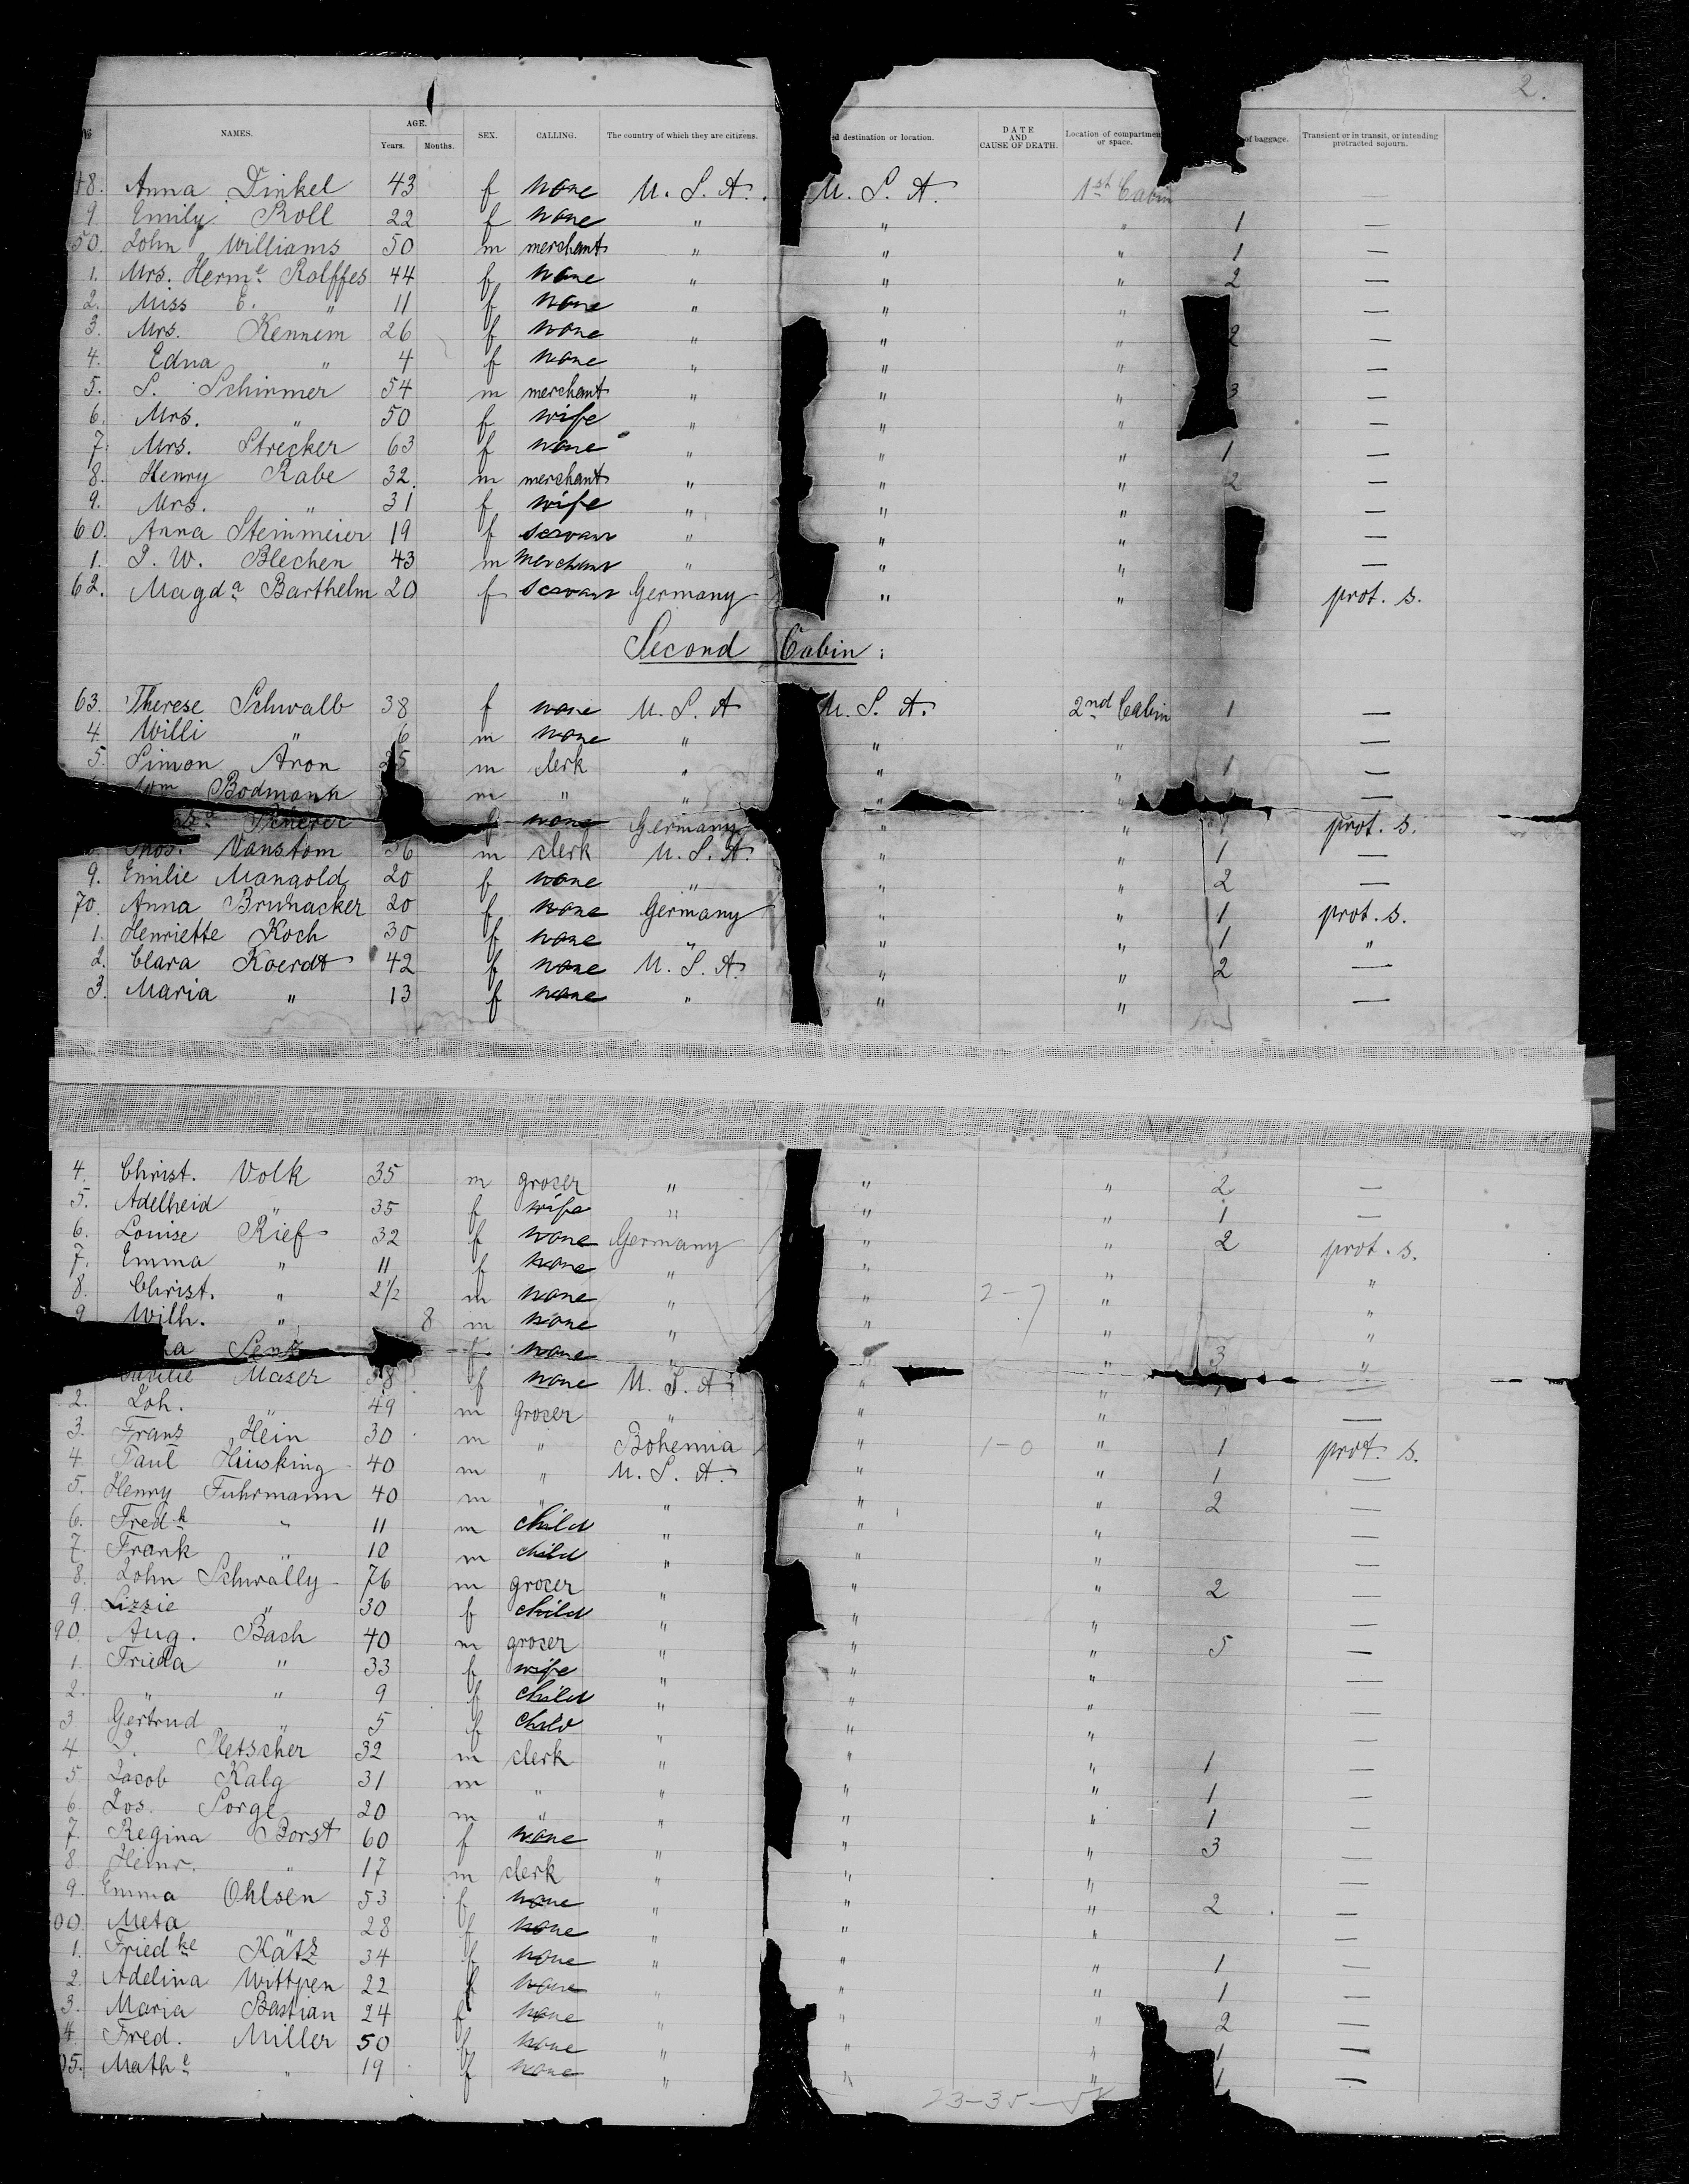 2.
NAMES. AGE. Years. Months. SEX. CALLING. The country of which they are citizens. destination or location. DATE AND CAUSE OF DEATH. Location of compartment or space. of baggage. Transient or in transit, or intending protracted sojourn.
48. Anna Dinkel 43 f none U. S. A. U. S. A. 1st Cabin —
9 Emily Roll 22 f none " " " 1 —
50. John Williams 50 m merchant " " " 1 —
1. Mrs. Herme Rolffes 44 f none " " " 2 —
2. Miss E. " 11 f none " " " —
3. Mrs. Kennem 26 f none " " " 2 —
4. Edna " 4 f none " " " —
5. S. Schirmer 54 m merchant " " " 3 —
6. Mrs. " 50 f wife " " " —
7. Mrs. Strecker 63 f none " " " 1 —
8. Henry Rabe 32. m merchant " " " 2 —
9. Mrs. " 31 f wife " " " —
60. Anna Steinmeier 19 f servant " " " —
1. J. W. Blechen 43 m merchant " " " —
62. Magda Barthelm 20 f servant Germany " " prot. s.
Second Cabin :
63. Therese Schwalb 38 f none U. S. A U. S. A. 2nd Cabin 1 —
4. Willi " 6 m none " " " —
5. Simon Aron 25 m clerk " " " 1 —
Wm Bodmann m " " " —
f none Germany " " 1 prot. s.
Thos. Vanstom 36 m clerk U. S. A. " " 1 —
9. Emilie Mangold 20 f none " " " 2 —
70. Anna Bruhacker 20 f none Germany " " 1 prot. s.
1. Henriette Koch 30 f none " " " 1 "
2. Clara Koerdt 42 f none U. S. A. " " 2 —
3. Maria " 13 f none " " " —
4. Christ. Volk 35 m grocer " " " 2 —
5. Adelheid " 35 f wife " " " 1 —
6. Louise Rief 32 f none Germany " " 2 prot. s.
7. Emma " 11 f none " " " "
8. Christ. " 2 1/2 m none " " 2-7 " "
9 Wilh. " 8 m none " " " "
f none " " " 3 "
Maser 38 f none U. S. A. " " 1 —
2. Joh. " 49 m grocer " " " —
3. Franz Hein 30 m " Bohemia " 1-0 " 1 prot. s.
4. Paul Hüsking 40 m " U. S. A. " " 1 —
5. Henry Fuhrmann 40 m " " " " 2 —
6. Fredk " 11 m child " " " —
7. Frank " 10 m child " " " —
8. John Schwally 76 m grocer " " " 2 —
9. Lizzie " 30 f child " " " —
90. Aug. Bach 40 m grocer " " " 5 —
1. Frieda " 33 f wife " " " —
2. " " 9 f child " " " —
3 Gertrud " 5 f child " " " —
4 J. Pletscher 32 m clerk " " " 1 —
5. Jacob Kalg 31 m " " " " 1 —
6. Jos. Sorge 20 m " " " " 1 —
7. Regina Borst 60 f none " " " 3 —
8. Heinr. " 17 m clerk " " " —
9. Emma Ohlsen 53 f none " " " 2 —
00. Meta " 28 f none " " " —
1. Friedke Kätz 34 f none " " " 1 —
2. Adelina Wittpen 22 f none " " " 1 —
3. Maria Bastian 24 f none " " " 2 —
4. Fred. Miller 50 f none " " " 1 —
05. Mathe " 19 f none " " " 1 —
23-35-58